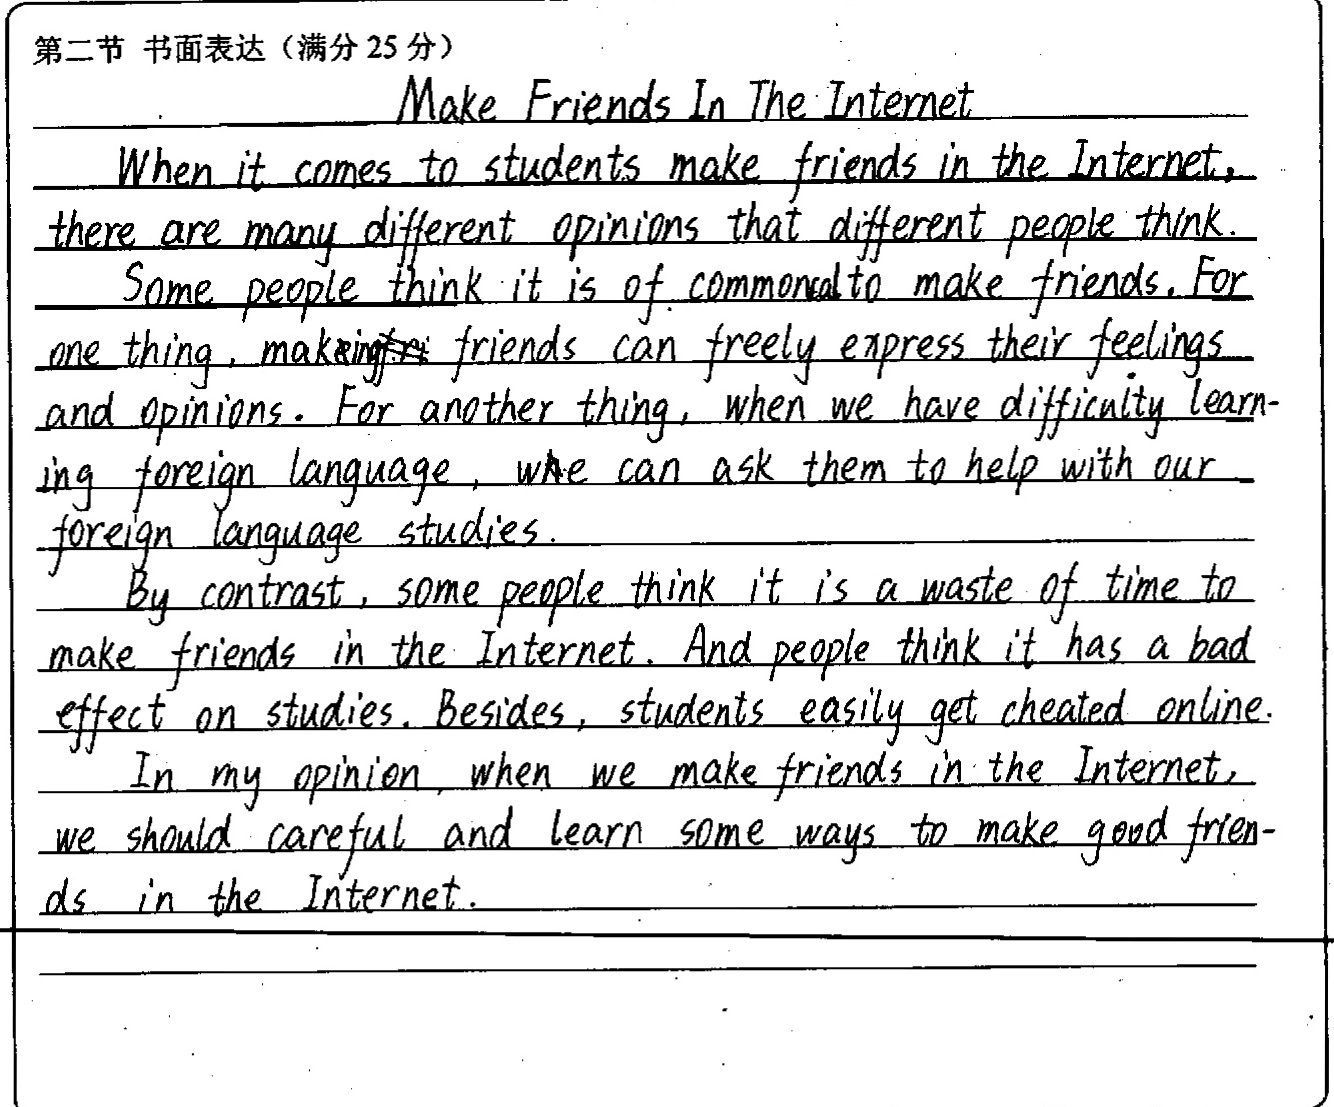 第二节 书面表达（满分 25 分）
Make Friends In The Internet
When it comes to students make friends in the Internet,
there are many different opinions that different people think.
Some people think it is of to make friends. For
one thing, making friends can freely express their feelings
and opinions. For another thing, when we have difficulty learn-
ing foreign language, we can ask them to help with our
foreign language studies.
By contrast, some people think it is a waste of time to
make friends in the Internet. And people think it has a bad
effect on studies. Besides, students easily get cheated online.
In my opinion, when we make friends in the Internet,
we should careful and learn some ways to make good frien-
ds in the Internet.